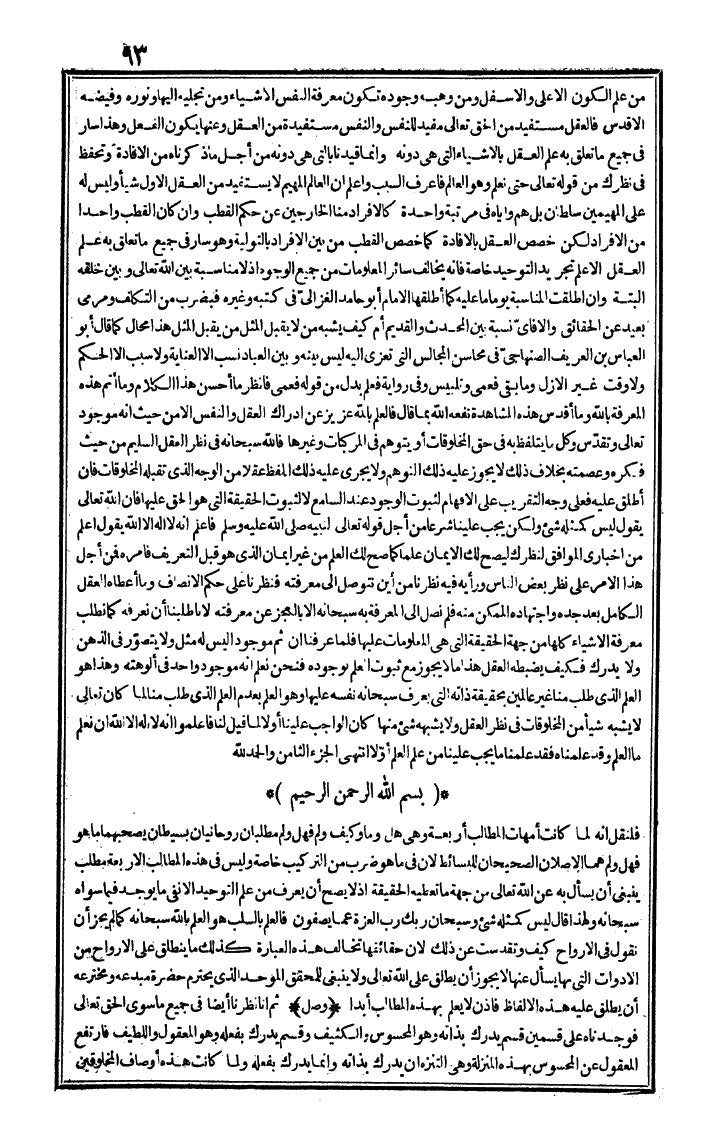 ٩٣
من علم الكون الاعلى والاسفل ومن وهبه وجوده تكون معرفة النفس الاشياء ومن تجليه اليها ونوره وفيضه
الاقدس فالعقل مستفيد من الحق تعالى مفيد للنفس والنفس مستفيدة من العقل وعنها يكون الفعل وهذا سار
فى جميع ماتعلق به علم العقل بالاشياء التى هى دونه وانما قيدنا بالتى هى دونه من أجل ماذكرناه من الافادة وتحفظ
فى نظرك من قوله تعالى حتى نعلم وهو العالم فاعرف السبب واعلم ان العالم المهيم لا يستفيد من العقل الاول شيأ وليس له
على المهيمين سلطان بل هم واياه فى مرتبة واحدة كالافراد منا الخارجين عن حكم القطب وان كان القطب واحدا
من الافراد لكن خصص العقل بالافادة كما خصص القطب من بين الافراد بالتولية وهو سار فى جميع ماتعلق به علم
العقل الاعلم تجريد التوحيد خاصة فانه يخالف سائر المعلومات من جميع الوجوه اذلا مناسبة بين الله تعالى وبين خلقه
البتة وان اطلقت المناسبة يوما ما عليه كما أطلقها الامام أبو حامد الغزالى فى كتبه وغيره فبضرب من التكلف ومرمى
بعيد عن الحقائق والافاى نسبة بين المحدث والقديم أم كيف يشبه من لا يقبل المثل من يقبل المثل هذا محال كما قال أبو
العباس بن العريف الصنهاجى فى محاسن المجالس التى تعزى اليه ليس بينه وبين العباد نسب الا العناية ولا سبب الا الحكم
ولا وقت غير الازل وما بقى فعمى وتلبيس وفى رواية فعلم بدل من قوله فعمى فانظر ما أحسن هذا الكلام وما أتم هذه
المعرفة بالله وما أقدس هذه المشاهدة نفعه الله بما قال فالعلم بالله عزيز عن ادراك العقل والنفس الا من حيث انه موجود
تعالى وتقدّس وكل ما يتلفظ به فى حق المخلوقات أو يتوهم فى المركبات وغيرها فالله سبحانه فى نظر العقل السليم من حيث
فكره وعصمته بخلاف ذلك لا يجوز عليه ذلك التوهم ولا يجرى عليه ذلك اللفظ عقلا من الوجه الذى تقبله المخلوقات فان
أطلق عليه فعلى وجه التقريب على الافهام لثبوت الوجود عند السامع لا لثبوت الحقيقة التى هو الحق عليها فان الله تعالى
يقول ليس كمثله شئ ولكن يجب علينا شرعا من أجل قوله تعالى لنبيه صلى الله عليه وسلم فاعلم انه لا اله الا الله يقول اعلم
من اخبارى الموافق لنظرك ليصح لك الايمان علما كما صح لك العلم من غير ايمان الذى هو قبل التعريف فامره فن أجل
هذا الامر على نظر بعض الناس ورأيه فيه نظرنا من أين نتوصل الى معرفته فنظرنا على حكم الانصاف وما أعطاه العقل
الكامل بعد جده واجتهاده الممكن منه فلم نصل الى المعرفة به سبحانه الا بالعجز عن معرفته لانا طلبنا أن نعرفه كما نطلب
معرفة الاشياء كلها من جهة الحقيقة التى هى المعلومات عليها فلما عرفنا ان ثم موجودا ليس له مثل ولا يتصوّر فى الذهن
ولا يدرك فكيف يضبطه العقل هذا ما لا يجوز مع ثبوت العلم بوجوده فنحن نعلم انه موجود واحد فى ألوهته وهذا هو
العلم الذى طلب منا غير عالمين بحقيقة ذاته التى يعرف سبحانه نفسه عليها وهو العلم بعدم العلم الذى طلب منا لما كان تعالى
لا يشبه شيأ من المخلوقات فى نظر العقل ولا يشبهه شئ منها كان الواجب علينا أولا لما قيل لنا فاعلموا انه لا اله الا الله ان نعلم
ما العلم وقد علمناه فقد علمنا ما يجب علينا من علم العلم أوّلا انتهى الجزء الثامن والحمد لله
*( بسم الله الرحمن الرحيم )*
فلنقل انه لما كانت أمهات المطالب أربعة وهى هل وما وكيف ولم فهل ولم مطلبان روحانيان بسيطان يصحبهما ما هو
فهل ولم هما الاصلان الصحيحان للبسائط لان فى ما هو ضرب من التركيب خاصة وليس فى هذه المطالب الاربعة مطلب
ينبغى أن يسأل به عن الله تعالى من جهة ما تعطيه الحقيقة اذ لا يصح أن يعرف من علم التوحيد الا نفى ما يوجد فيما سواه
سبحانه ولهذا قال ليس كمثله شئ وسبحان ربك رب العزة عما يصفون فالعلم بالسلب هو العلم بالله سبحانه كما لم يجز أن
نقول فى الارواح كيف وتقدست عن ذلك لان حقائقها تخالف هذه العبارة كذلك ما ينطلق على الارواح من
الادوات التى بها يسأل عنها لا يجوز أن يطلق على الله تعالى ولا ينبغى للمحقق الموحد الذى يحترم حضرة مبدعه ومخترعه
أن يطلق عليه هذه الالفاظ فاذن لا يعلم بهذه المطالب أبدا ﴿وصل﴾ ثم انا نظرنا أيضا فى جميع ما سوى الحق تعالى
فوجدناه على قسمين قسم يدرك بذاته وهو المحسوس والكثيف وقسم يدرك بفعله وهو المعقول واللطيف فارتفع
المعقول عن المحسوس بهذه المنزلة وهى التنزه ان يدرك بذاته وانما يدرك بفعله ولما كانت هذه أوصاف المخلوقين